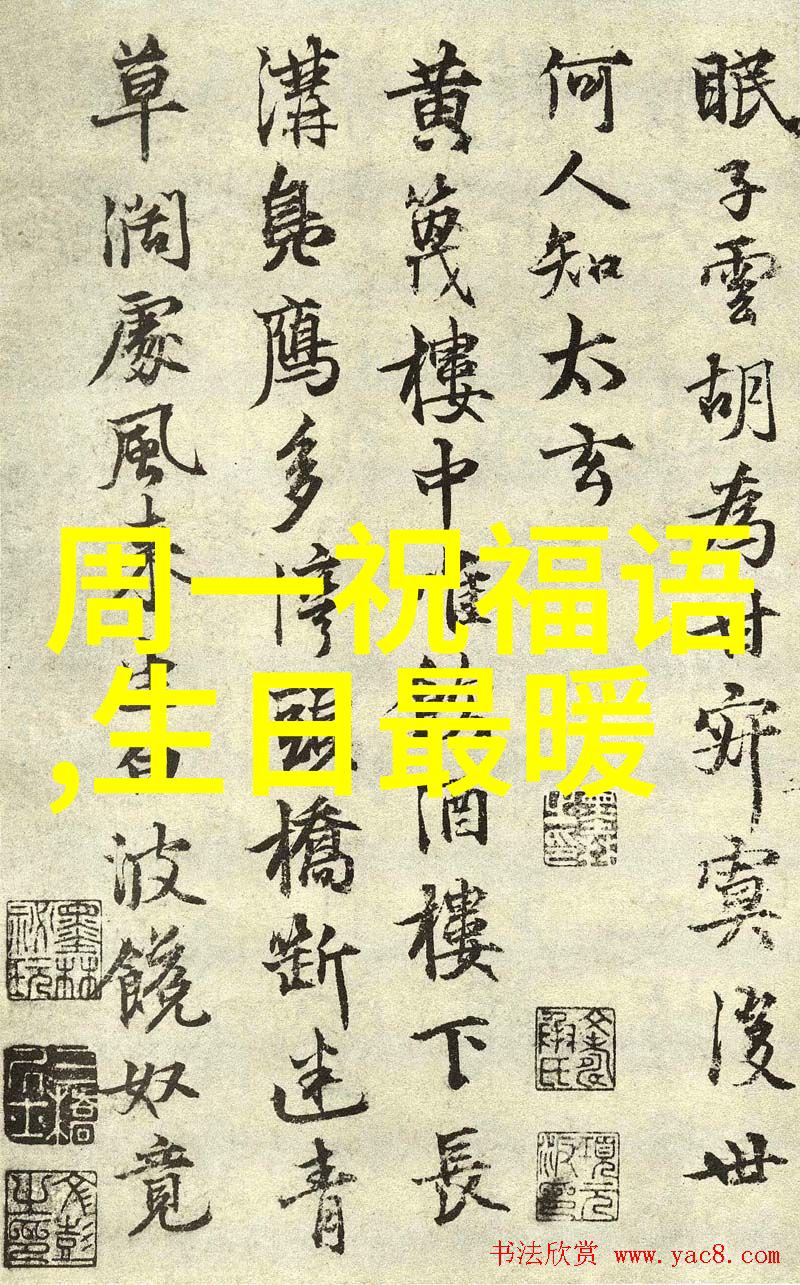 眠子雲胡為甘寂寞後世
何人知太玄
黄篾樓中
酒樓下長
溝鳧鷹多灣頭橋斷迷青
草闊處風來
波饒奴竟
周一祝福语
,生日最暖
书法欣赏 www.yac8.com